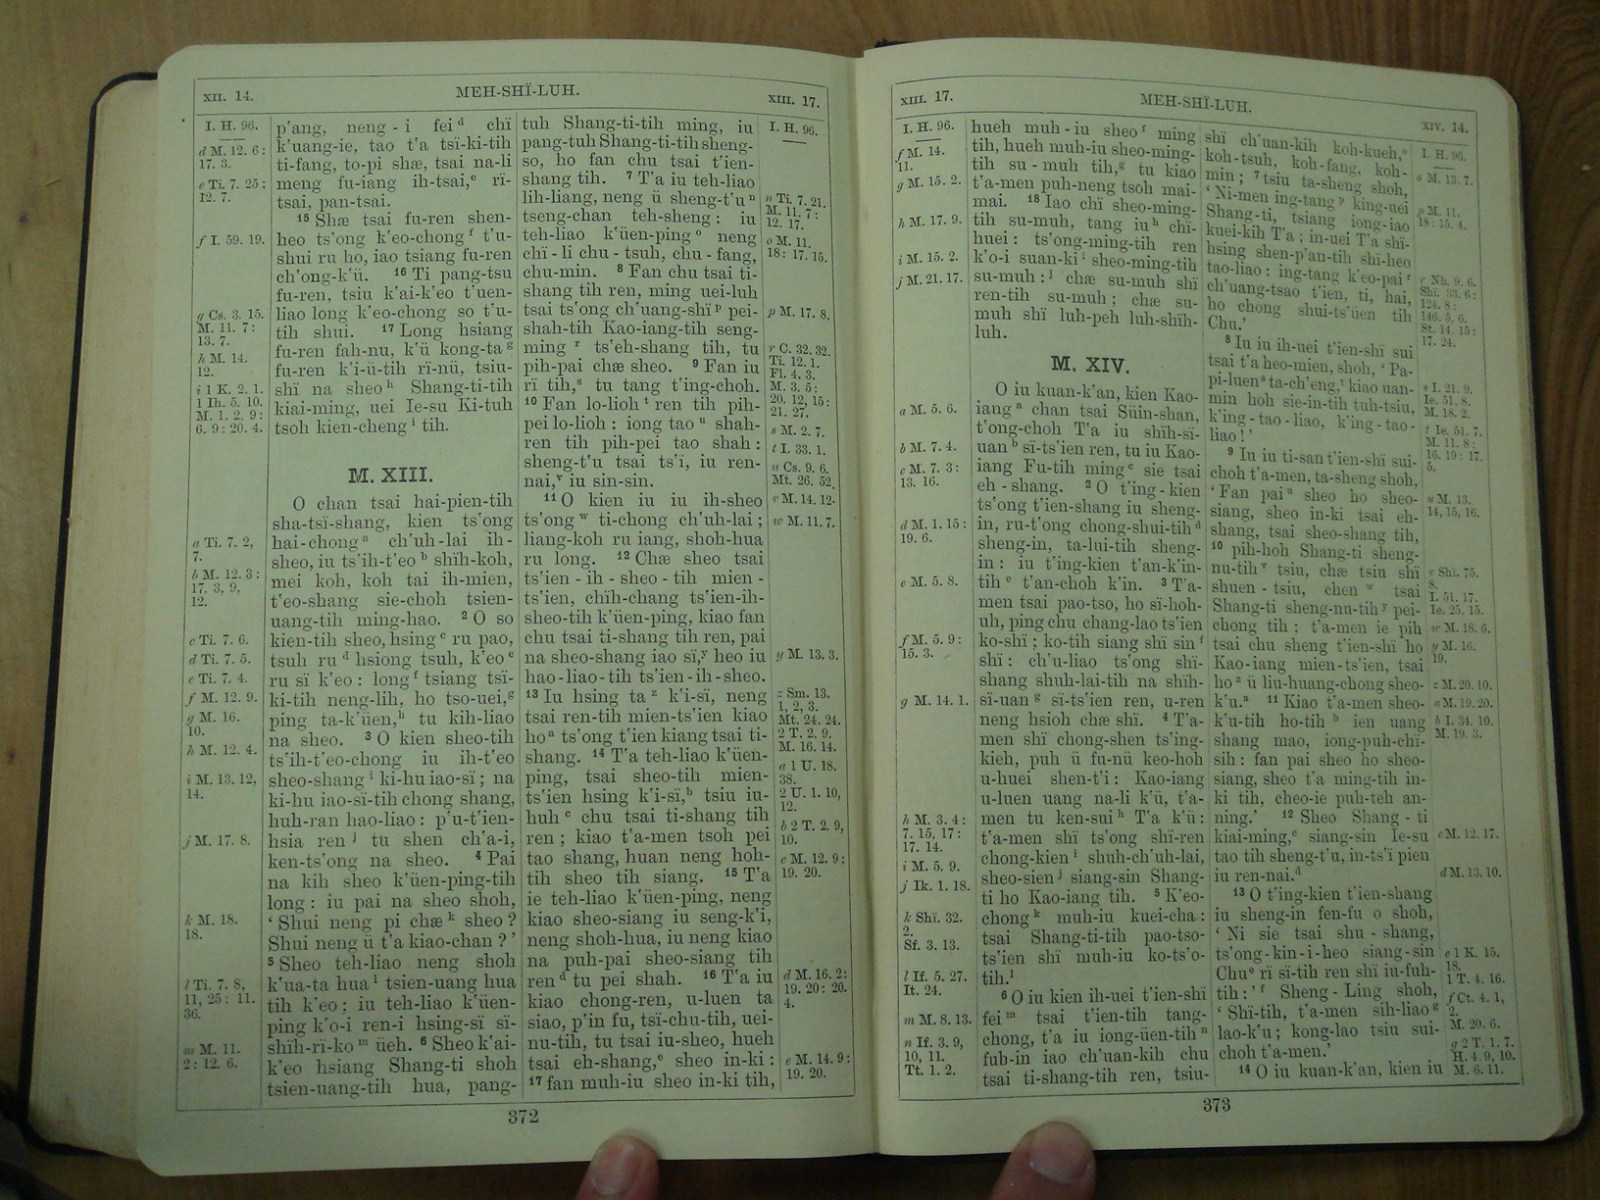 XII. 14.
MEH-SHÏ-LUH.
XIII. 17.
I. H. 96.
d M. 12. 6:
17. 3.
e Ti. 7. 25:
12. 7.
f I. 59. 19.
g Cs. 3. 15.
M. 11. 7:
13. 7.
h M. 14.
12.
i 1 K. 2. 1.
1 Ih. 5. 10.
M. 1. 2, 9:
6. 9: 20. 4.
a Ti. 7. 2,
7.
b M. 12. 3:
17. 3, 9,
12.
c Ti. 7. 6.
d Ti. 7. 5.
e Ti. 7. 4.
f M. 12. 9.
g M. 16.
10.
h M. 12. 4.
i M. 13. 12,
14.
j M. 17. 8.
k M. 18.
18.
l Ti. 7. 8,
11, 25: 11.
36.
m M. 11.
2: 12. 6.
p'ang, neng-i fei d chï
k'uang-ie, tao t'a tsï-ki-tih
ti-fang, to-pi shæ, tsai na-li
meng fu-iang ih-tsai, e rï-
tsai, pan-tsai.
15 Shæ tsai fu-ren shen-
heo ts'ong k'eo-chong f t'u-
shui ru ho, iao tsiang fu-ren
ch'ong-k'ü. 16 Ti pang-tsu
fu-ren, tsiu k'ai-k'eo t'uen-
liao long k'eo-chong so t'u-
tih shui. 17 Long hsiang
fu-ren fah-nu, k'ü kong-ta g
fu-ren k'i-ü-tih rï-nü, tsiu-
shï na sheo h Shang-ti-tih
kiai-ming, uei Ie-su Ki-tuh
tsoh kien-cheng i tih.
M. XIII.
O chan tsai hai-pien-tih
sha-tsï-shang, kien ts'ong
hai-chong a ch'uh-lai ih-
sheo, iu ts'ih-t'eo b shïh-koh,
mei koh, koh tai ih-mien,
t'eo-shang sie-choh tsien-
uang-tih ming-hao. 2 O so
kien-tih sheo, hsing c ru pao,
tsuh ru d hsiong tsuh, k'eo e
ru sï k'eo: long f tsiang tsï-
ki-tih neng-lih, ho tso-uei, g
ping ta-k'üen, h tu kih-liao
na sheo. 3 O kien sheo-tih
ts'ih-t'eo-chong iu ih-t'eo
sheo-shang i ki-hu iao-sï; na
ki-hu iao-sï-tih chong shang,
huh-ran hao-liao: p'u-t'ien-
hsia ren j tu shen ch'a-i,
ken-ts'ong na sheo. 4 Pai
na kih sheo k'üen-ping-tih
long: iu pai na sheo shoh,
‘ Shui neng pi chæ k sheo?
Shui neng ü t'a kiao-chan?’
5 Sheo teh-liao neng shoh
k'ua-ta hua l tsien-uang hua
tih k'eo; iu teh-liao k'üen-
ping k'o-i ren-i hsing-sï sï-
shïh-rï-ko m üeh. 6 Sheo k'ai-
k'eo hsiang Shang-ti shoh
tsien-uang-tih hua, pang-
tuh Shang-ti-tih ming, iu
pang-tuh Shang-ti-tih sheng-
so, ho fan chu tsai t'ien-
shang tih. 7 T'a iu teh-liao
lih-liang, neng ü sheng-t'u n
tseng-chan teh-sheng: iu
teh-liao k'üen-ping o neng
chï-li chu-tsuh, chu-fang,
chu-min. 8 Fan chu tsai ti-
shang tih ren, ming uei-luh
tsai ts'ong ch'uang-shï p pei-
shah-tih Kao-iang-tih seng-
ming r ts'eh-shang tih, tu
pih-pai chæ sheo. 9 Fan iu
rï tih, s tu tang t'ing-choh.
10 Fan lo-lioh t ren tih pih-
pei lo-lioh: iong tao u shah-
ren tih pih-pei tao shah:
sheng-t'u tsai ts'ï, iu ren-
nai, v iu sin-sin.
11 O kien iu iu ih-sheo
ts'ong w ti-chong ch'uh-lai;
liang-koh ru iang, shoh-hua
ru long. 12 Chæ sheo tsai
ts'ien-ih-sheo-tih mien-
ts'ien, chïh-chang ts'ien-ih-
sheo-tih k'üen-ping, kiao fan
chu tsai ti-shang tih ren, pai
na sheo-shang iao sï, y heo iu
hao-liao-tih ts'ien-ih-sheo.
13 Iu hsing ta z k'i-sï, neng
tsai ren-tih mien-ts'ien kiao
ho a ts'ong t'ien kiang tsai ti-
shang. 14 T'a teh-liao k'üen-
ping, tsai sheo-tih mien-
ts'ien hsing k'i-sï, b tsiu iu-
huh c chu tsai ti-shang tih
ren; kiao t'a-men tsoh pei
tao shang, huan neng hoh-
tih sheo tih siang. 15 T'a
ie teh-liao k'üen-ping, neng
kiao sheo-siang iu seng-k'i,
neng shoh-hua, iu neng kiao
na puh-pai sheo-siang tih
ren d tu pei shah. 16 T'a iu
kiao chong-ren, u-luen ta
siao, p'in fu, tsï-chu-tih, uei-
nu-tih, tu tsai iu-sheo, hueh
tsai eh-shang, e sheo in-ki:
17 fan muh-iu sheo in-ki tih,
I. H. 96.
n Ti. 7. 21.
M. 11. 7:
12. 17.
o M. 11.
18: 17. 15.
p M. 17. 8.
r C. 32. 32.
Ti. 12. 1.
Fl. 4. 3.
M. 3. 5:
20. 12, 15:
21. 27.
s M. 2. 7.
t I. 33. 1.
u Cs. 9. 6.
Mt. 26. 52.
v M. 14. 12.
w M. 11. 7.
y M. 13. 3.
z Sm. 13.
1, 2, 3.
Mt. 24. 24.
2 T. 2. 9.
M. 16. 14.
a 1 U. 18.
38.
2 U. 1. 10,
12.
b 2 T. 2. 9,
10.
c M. 12. 9:
19. 20.
d M. 16. 2:
19. 20: 20.
4.
e M. 14. 9:
19. 20.
372
XIII. 17.
MEH-SHÏ-LUH.
XIV. 14.
I. H. 96.
f M. 14.
11.
g M. 15. 2.
h M. 17. 9.
i M. 15. 2.
j M. 21. 17.
a M. 5. 6.
b M. 7. 4.
c M. 7. 3:
13. 16.
d M. 1. 15:
19. 6.
e M. 5. 8.
f M. 5. 9:
15. 3.
g M. 14. 1.
h M. 3. 4:
7. 15, 17:
17. 14.
i M. 5. 9.
j Ik. 1. 18.
k Shï. 32.
2.
Sf. 3. 13.
l If. 5. 27.
It. 24.
m M. 8. 13.
n If. 3. 9,
10, 11.
Tt. 1. 2.
hueh muh-iu sheo f ming
tih, hueh muh-iu sheo-ming-
tih su-muh tih, g tu kiao
t'a-men puh-neng tsoh mai-
mai. 18 Iao chï sheo-ming-
tih su-muh, tang iu h chï-
huei: ts'ong-ming-tih ren
k'o-i suan-ki i sheo-ming-tih
su-muh: j chæ su-muh shï
ren-tih su-muh; chæ su-
muh shï luh-peh luh-shïh-
luh.
M. XIV.
O iu kuan-k'an, kien Kao-
iang a chan tsai Süin-shan,
t'ong-choh T'a iu shïh-sï-
uan b sï-ts'ien ren, tu iu Kao-
iang Fu-tih ming c sie tsai
eh-shang. 2 O t'ing-kien
ts'ong t'ien-shang iu sheng-
in, ru-t'ong chong-shui-tih d
sheng-in, ta-lui-tih sheng-
in: iu t'ing-kien t'an-k'in-
tih e t'an-choh k'in. 3 T'a-
men tsai pao-tso, ho sï-hoh-
uh, ping chu chang-lao ts'ien
ko-shï; ko-tih siang shï sin f
shï: ch'u-liao ts'ong shï-
shang shuh-lai-tih na shïh-
sï-uan g sï-ts'ien ren, u-ren
neng hsioh chæ shï. 4 T'a-
men shï chong-shen ts'ing-
kieh, puh ü fu-nü keo-hoh
u-huei shen-t'i: Kao-iang
u-luen uang na-li k'ü, t'a-
men tu ken-sui h T'a k'ü:
t'a-men shï ts'ong shï-ren
chong-kien i shuh-ch'uh-lai,
sheo-sien j siang-sin Shang-
ti ho Kao-iang tih. 5 K'eo-
chong k muh-iu kuei-cha:
tsai Shang-ti-tih pao-tso-
ts'ien shï muh-iu ko-ts'o-
tih. l
6 O iu kien ih-uei t'ien-shï
fei m tsai t'ien-tih tang-
chong, t'a iu iong-üen-tih n
fuh-in iao ch'uan-kih chu
tsai ti-shang-tih ren, tsiu-
shï ch'uan-kih koh-kueh, o
koh-tsuh, koh-fang, koh-
min; 7 tsiu ta-sheng shoh,
‘ Ni-men ing-tang p king-uei
Shang-ti, tsiang iong-iao
kuei-kih T'a; in-uei T'a shï-
hsing shen-p'an-tih shï-heo
tao-liao: ing-tang k'eo-pai r
ch'uang-tsao t'ien, ti, hai,
ho chong shui-ts'üen tih
Chu.’
8 Iu iu ih-uei t'ien-shï sui
tsai t'a heo-mien, shoh, ‘ Pa-
pi-luen s ta-ch'eng, t kiao uan-
min hoh sie-in-tih tuh-tsiu,
k'ing-tao-liao, k'ing-tao-
liao!’
9 Iu iu ti-san t'ien-shï sui-
choh t'a-men, ta-sheng shoh,
‘ Fan pai u sheo ho sheo-
siang, sheo in-ki tsai eh-
shang, tsai sheo-shang tih,
10 pih-hoh Shang-ti sheng-
nu-tih v tsiu, chæ tsiu shï
shuen-tsiu, chen w tsai
Shang-ti sheng-nu-tih y pei-
chong tih: t'a-men ie pih
tsai chu sheng t'ien-shï ho
Kao-iang mien-ts'ien, tsai
ho z ü liu-huang-chong sheo-
k'u. a 11 Kiao t'a-men sheo-
k'u-tih ho-tih b ien uang
shang mao, iong-puh-chï-
sih: fan pai sheo ho sheo-
siang, sheo t'a ming-tih in-
ki tih, cheo-ie puh-teh an-
ning.’ 12 Sheo Shang-ti
kiai-ming, c siang-sin Ie-su
tao tih sheng-t'u, in-ts'ï pien
iu ren-nai. d
13 O t'ing-kien t'ien-shang
iu sheng-in fen-fu o shoh,
‘ Ni sie tsai shu-shang,
ts'ong-kin-i-heo siang-sin
Chu e rï sï-tih ren shï iu-fuh-
tih:’ f Sheng-Ling shoh,
‘ Shï-tih, t'a-men sih-liao g
lao-k'u; kong-lao tsiu sui-
choh t'a-men.’
14 O iu kuan-k'an, kien iu
I. H. 96.
o M. 13. 7.
p M. 11.
18: 15. 4.
r Nh. 9. 6.
Shï. 33. 6:
124. 8:
146. 5, 6.
St. 14. 15:
17. 24.
s I. 21. 9.
Ie. 51. 8.
M. 18. 2.
t Ie. 51. 7.
M. 11. 8:
16. 19: 17.
5.
u M. 13.
14, 15, 16.
v Shï. 75.
8.
I. 51. 17.
Ie. 25. 15.
w M. 18. 6.
y M. 16.
19.
z M. 20. 10.
a M. 19. 20.
b I. 34. 10.
M. 19. 3.
c M. 12. 17.
d M. 13. 10.
e 1 K. 15.
18.
1 T. 4. 16.
f Ct. 4. 1,
2.
M. 20. 6.
g 2 T. 1. 7.
H. 4. 9, 10.
M. 6. 11.
373